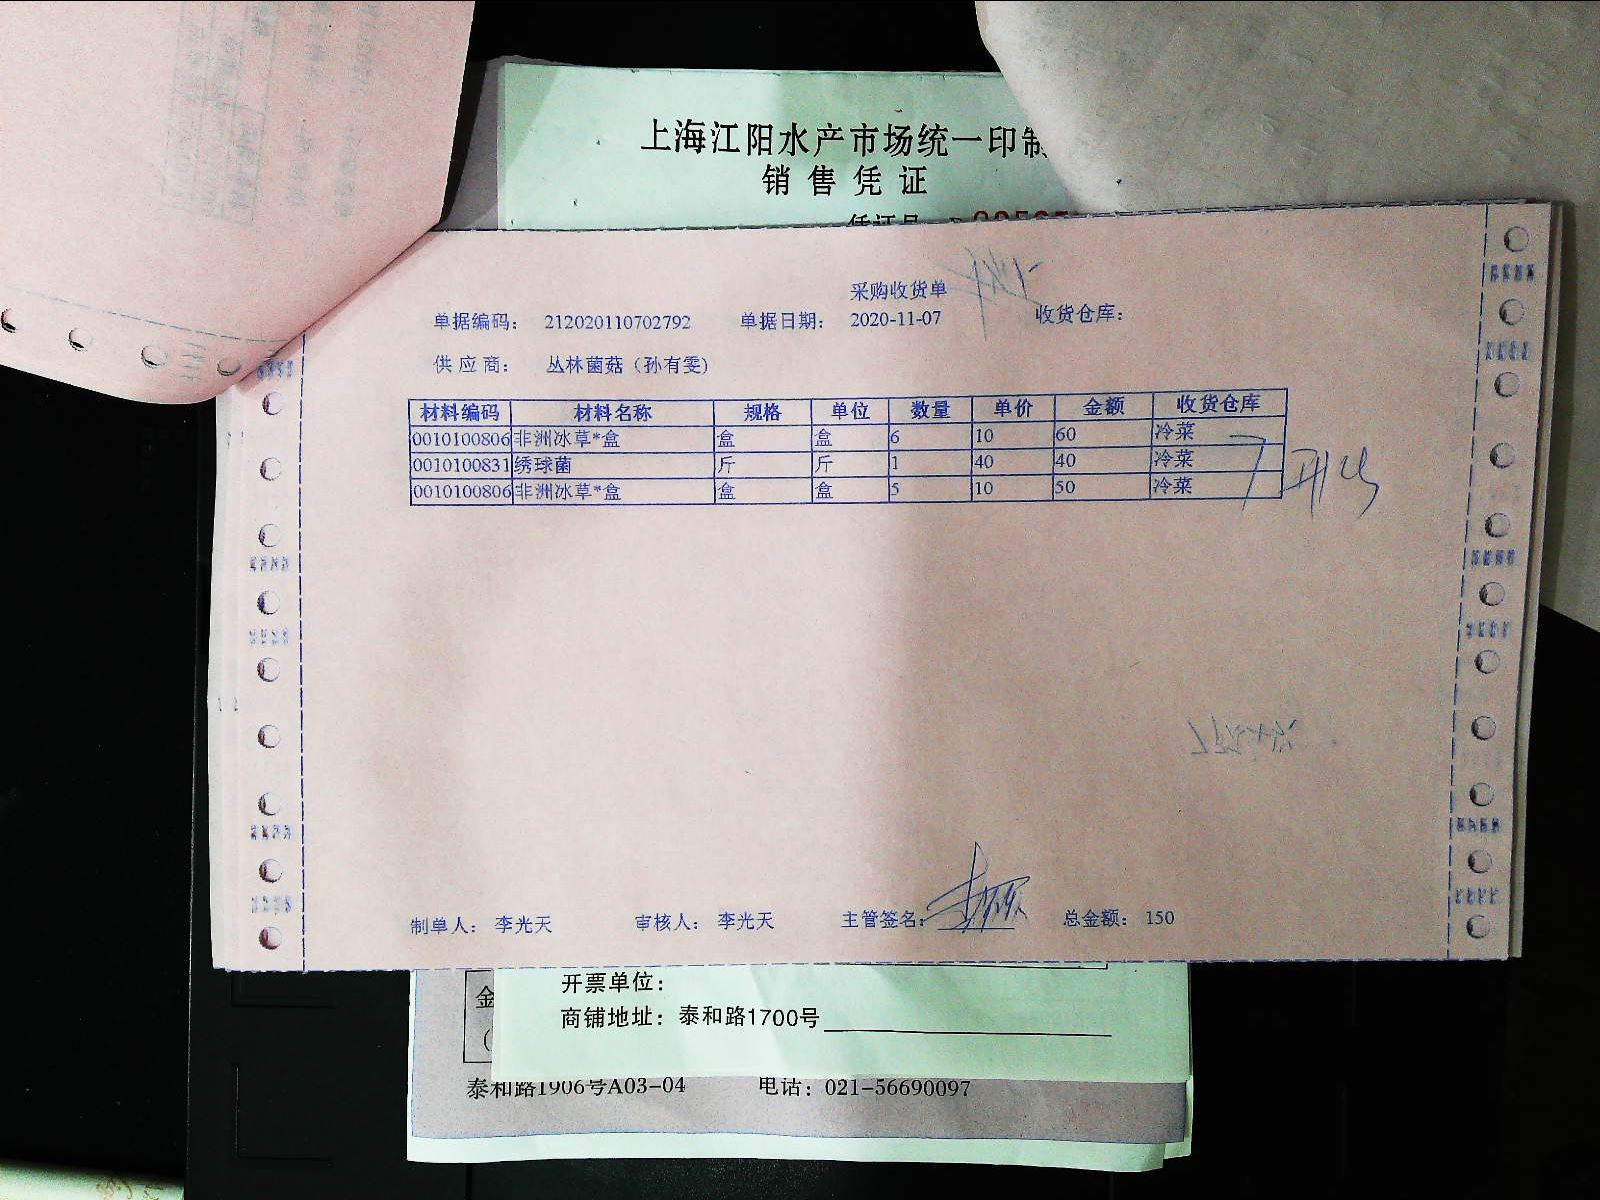 上海江阳水产市场统一印制
销售凭证
采购收货单
单据编码： 212020110702792 单据日期： 2020-11-07 收货仓库：
供应商： 丛林菌菇（孙有雯）
材料编码 材料名称 规格 单位 数量 单价 金额 收货仓库
0010100806 非洲冰草*盒 盒 盒 6 10 60 冷菜
0010100831 绣球菌 斤 斤 1 40 40 冷菜
0010100806 非洲冰草*盒 盒 盒 5 10 50 冷菜
制单人： 李光天 审核人： 李光天 主管签名： 总金额： 150
金
开票单位：
商铺地址：泰和路1700号
泰和路1906号A03-04 电话：021-56690097